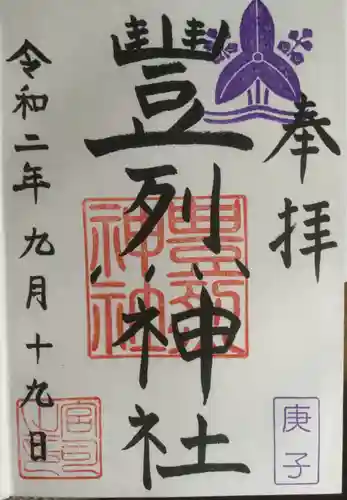 奉拝
豐列神社
豊烈神社
令和二年九月十九日
庚子